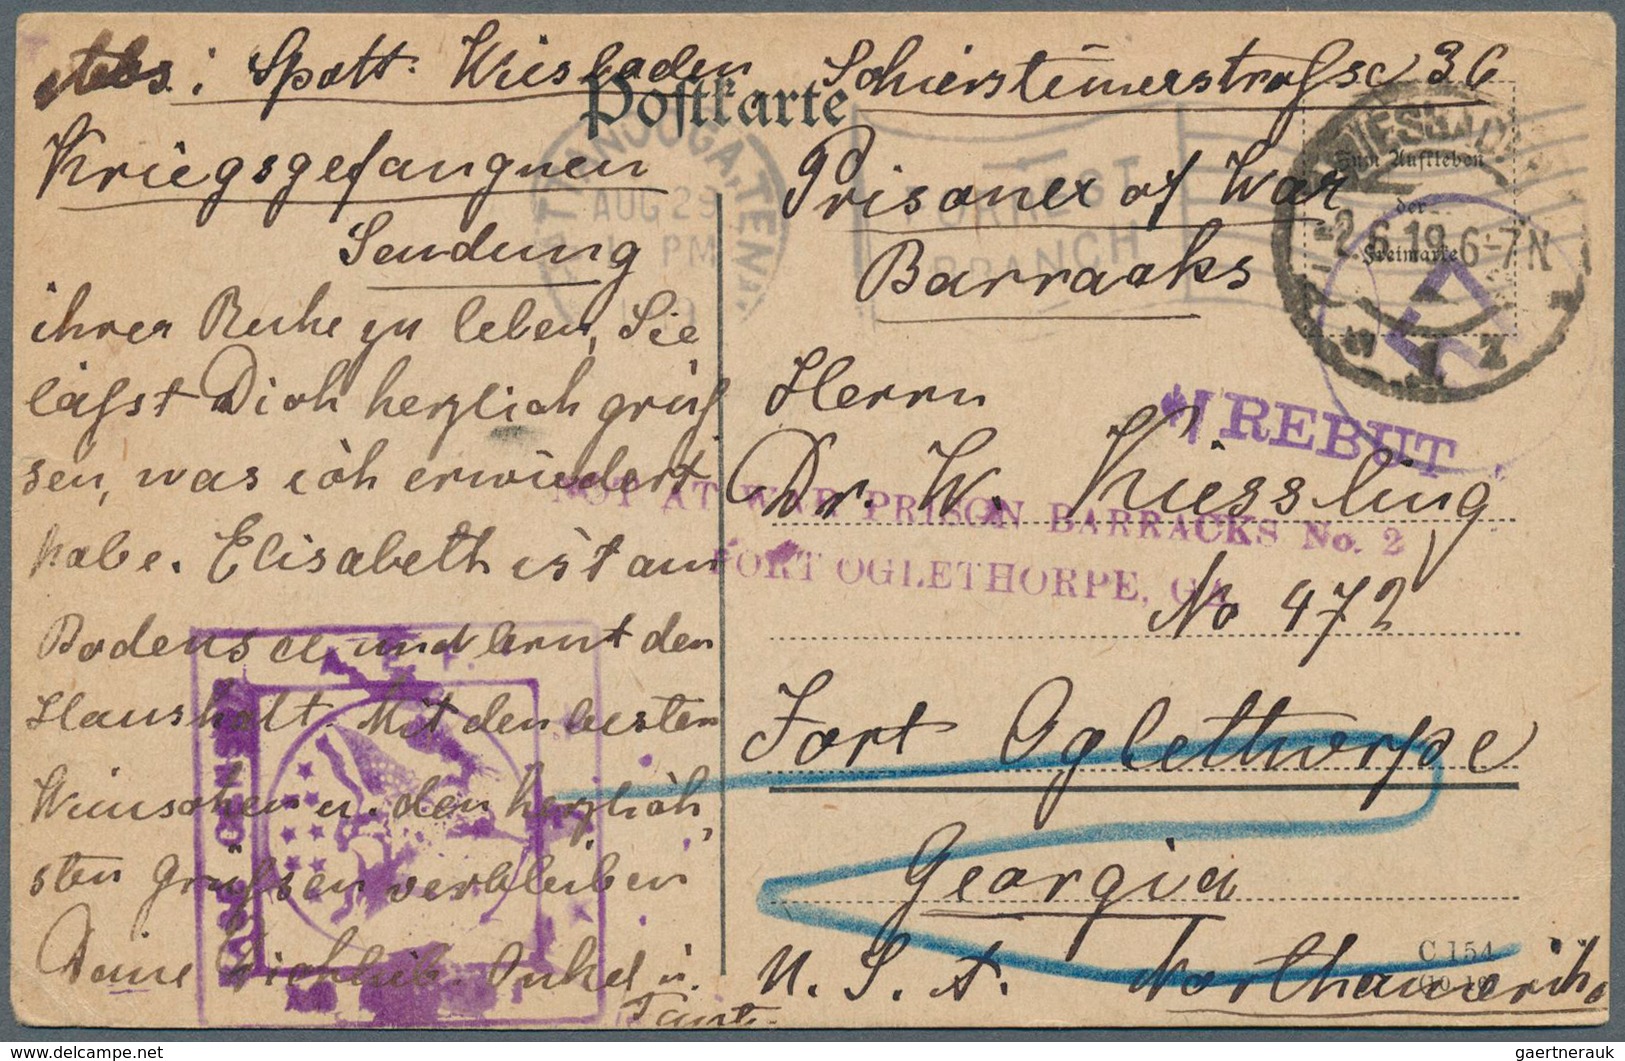 Abs: Spott. Wiesbaden Schiersteinerstraſse 36
Postkarte
Kriegsgefangnen
Sendung
ihrer Ruhe zu leben, Sie
läſst Dich herzlich grüſ
sen, was ich erwiedert
habe. Elisabeth ist am
Bodensee und lernt den
Haushalt. Mit den besten
Wünschen u. den herzlich,
sten Grüſsen verbleiben
Deine Dichlieb. Onkel u.
Tante.
Prisoner of War
Barracks
Herrn
Dr. W. Kiessling
No 472
Fort Oglethorpe
Georgia
U. S. A. Northamerika
CHATTANOOGA, TENN.
AUG 29
PM
FORREST
BRANCH
WIESBADEN
-2.6.19 6-7N
* 1 z
Zum Aufkleben
der
Freimarke
REBUT
NOT AT WAR PRISON BARRACKS No. 2
FORT OGLETHORPE, GA.
A.E.F.
BASE CENSOR
C 154